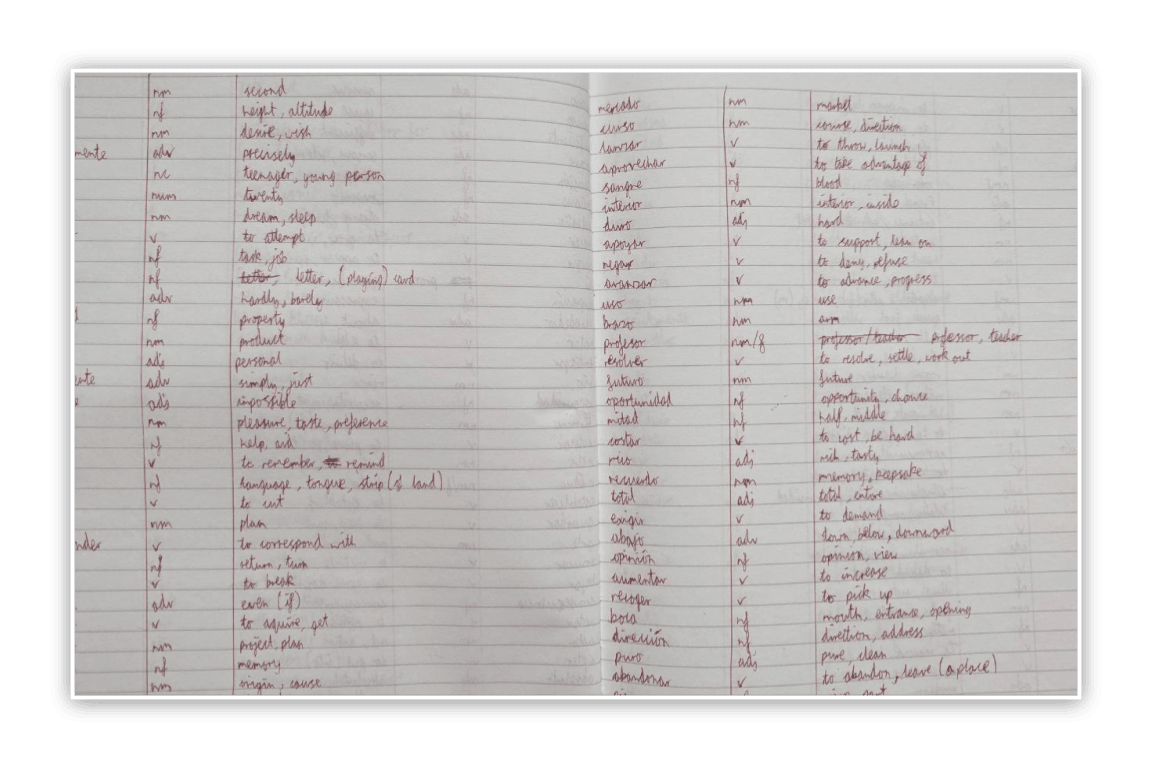 nm second
nf height, altitude
nm desire, wish
mente adv precisely
nc teenager, young person
num twenty
nm dream, sleep
v to attempt
nf task, job
nf letter, letter, (playing) card
adv hardly, barely
nf property
nm product
adj personal
ente adv simply, just
adj impossible
nm pleasure, taste, preference
nf help, aid
v to remember, remind
nf language, tongue, strip (of land)
v to cut
nm plan
nder v to correspond with
nf return, turn
v to break
adv even (if)
v to aquire, get
nm project, plan
nf memory
nm origin, cause
mercado nm market
curso nm course, direction
lanzar v to throw, launch
aprovechar v to take advantage of
sangre nf blood
interior nm interior, inside
duro adj hard
apoyar v to support, lean on
negar v to deny, refuse
avanzar v to advance, progress
uso nm use
brazo nm arm
profesor nm/f professor/teacher professor, teacher
resolver v to resolve, settle, work out
futuro nm future
oportunidad nf opportunity, chance
mitad nf half, middle
costar v to cost, be hard
rico adj rich, tasty
recuerdo nm memory, keepsake
total adj total, entire
exigir v to demand
abajo adv down, below, downward
opinión nf opinion, view
aumentar v to increase
recoger v to pick up
boca nf mouth, entrance, opening
dirección nf direction, address
puro adj pure, clean
abandonar v to abandon, leave (a place)